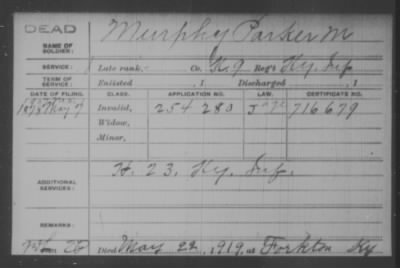 DEAD
NAME OF SOLDIER: Murphy Parker M
SERVICE: Late rank, Co. K. 9 Reg't Ky. Inf.
TERM OF SERVICE: Enlisted , 1 Discharged , 1
DATE OF FILING. CLASS. APPLICATION NO. LAW. CERTIFICATE NO.
1878 May 7 Invalid, 254 280 716679
Widow,
Minor,
ADDITIONAL SERVICES: H. 23, Ky. Inf.
REMARKS:
Died May 22, 1919, at Forkton Ky